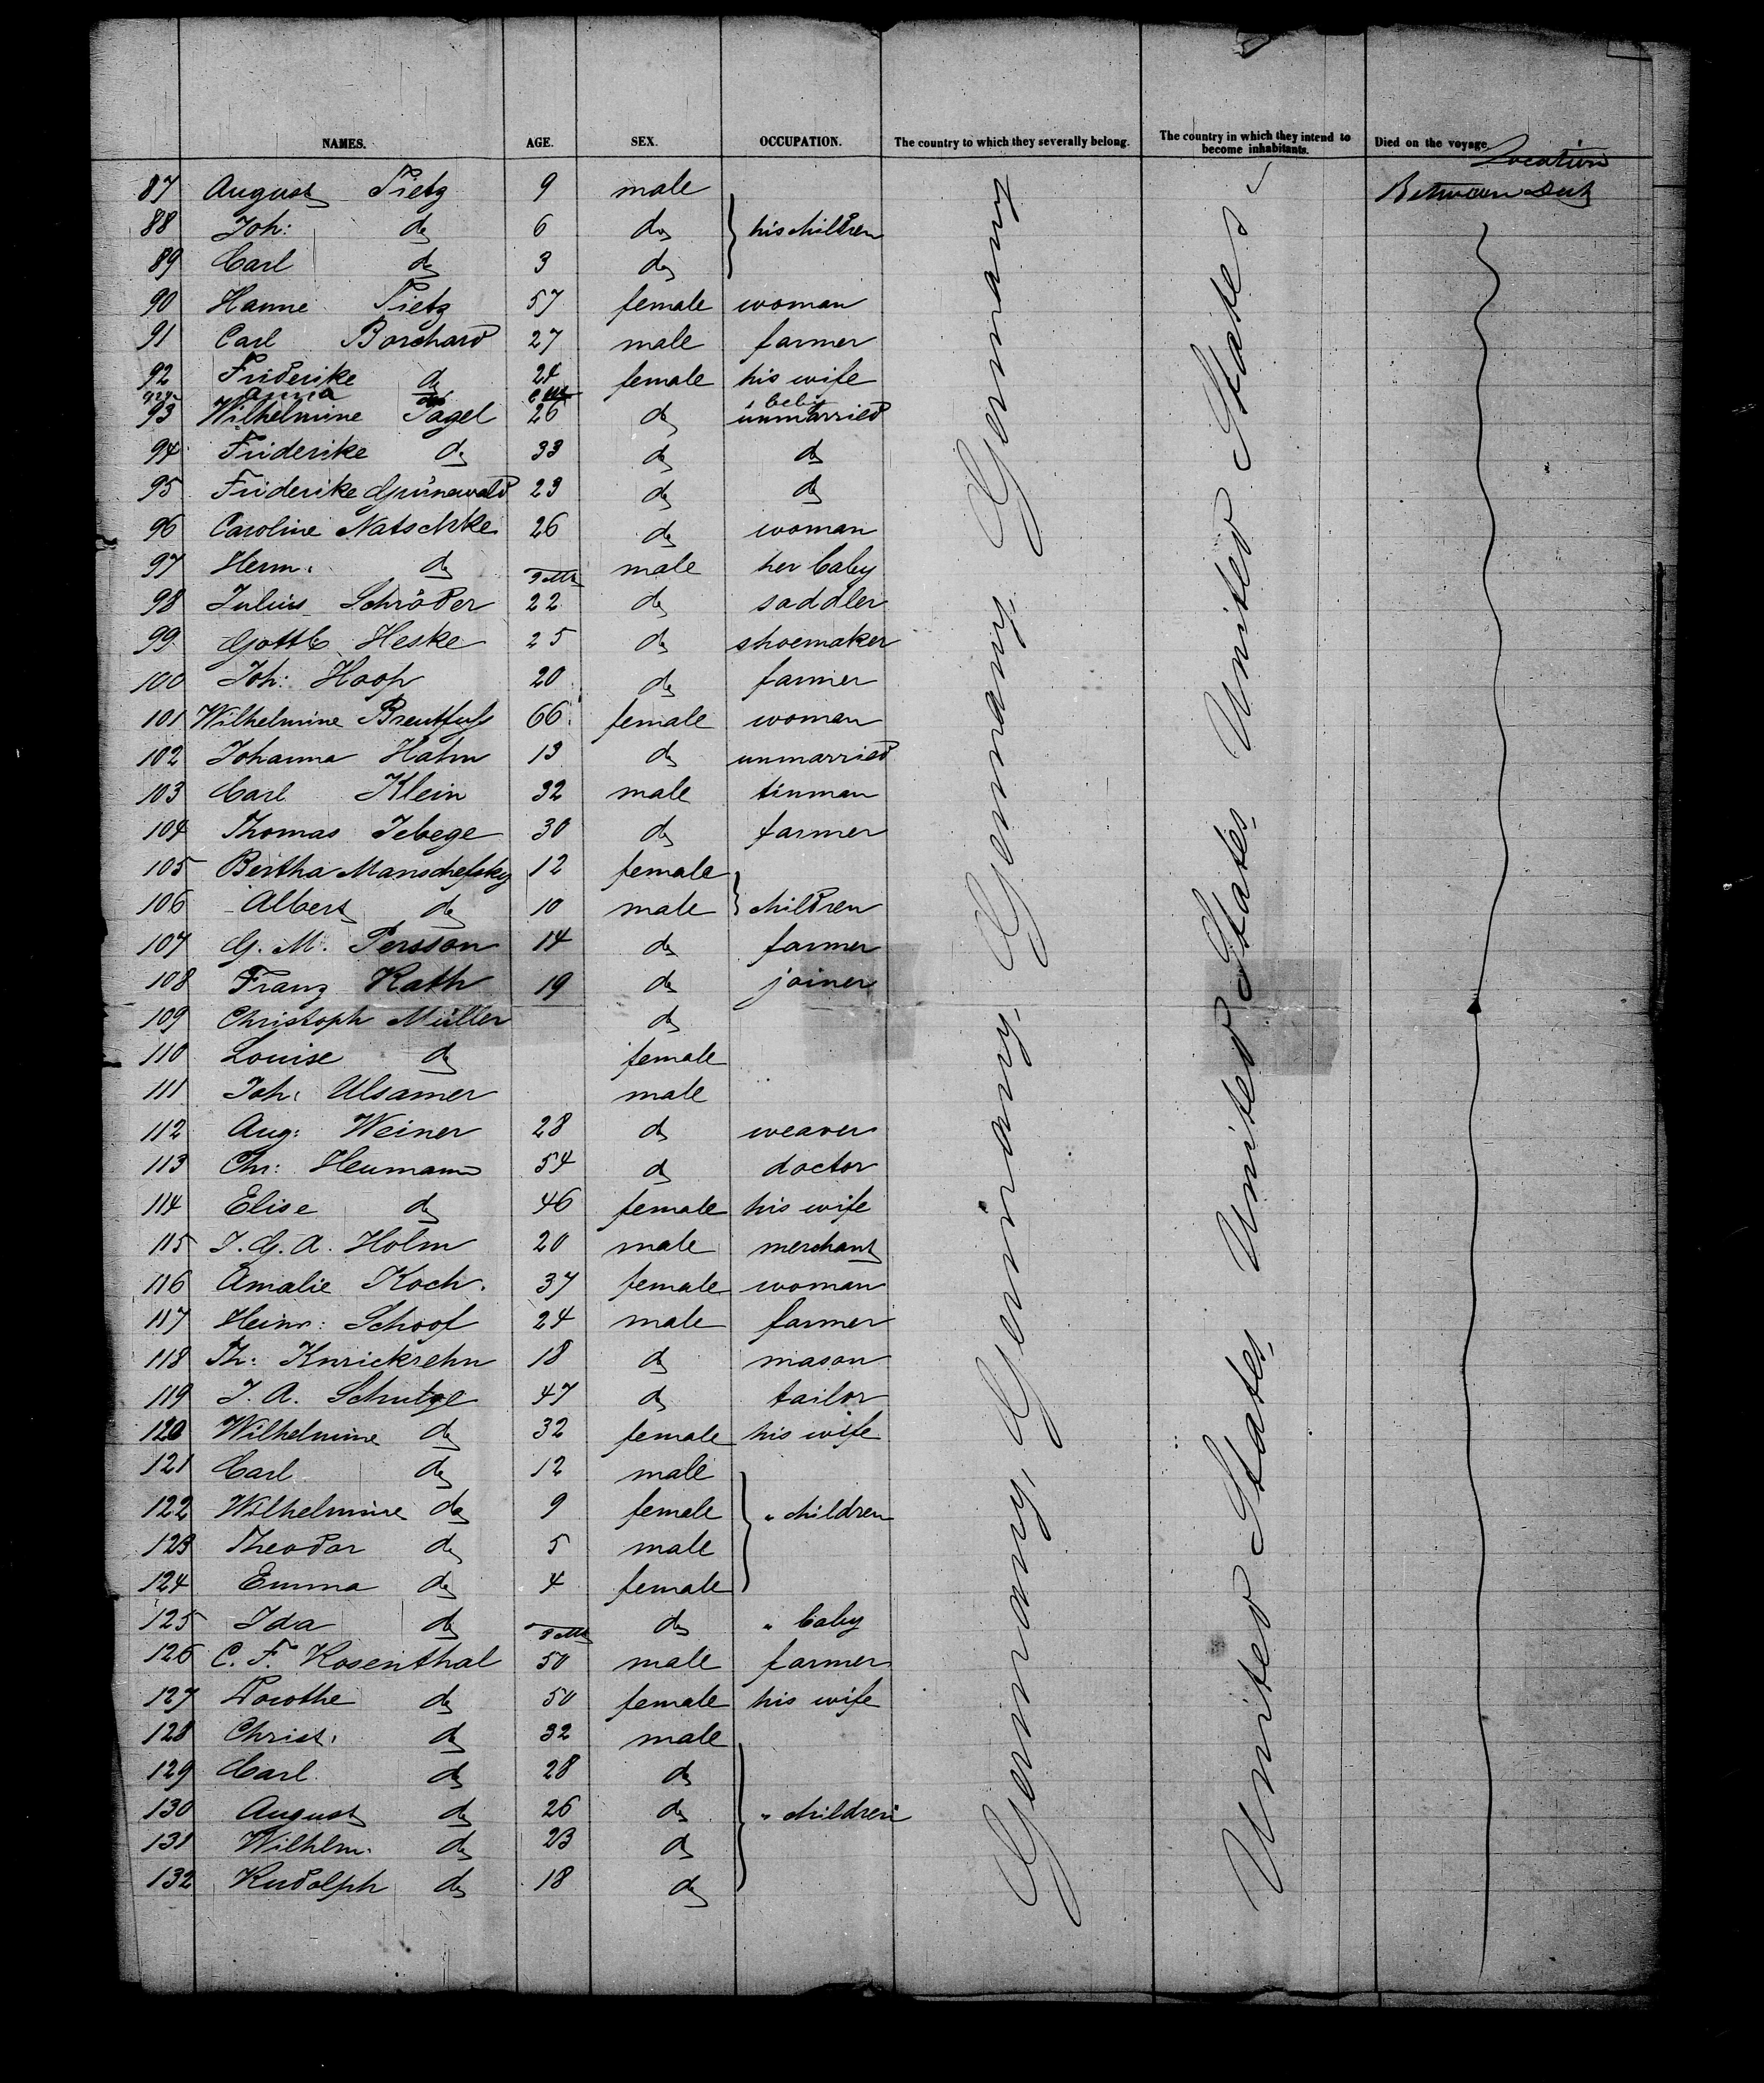 NAMES. AGE. SEX. OCCUPATION. The country to which they severally belong. The country in which they intend to become inhabitants. Died on the voyage.
Location
87 August Pietz 9 male Between Deck
88 Joh: do 6 do his children
89 Carl do 3 do
90 Hanne Pietz 57 female woman
91 Carl Borchard 27 male farmer
92 Friderike do 24 female his wife
Anna do baby
93 Wilhelmine Pagel 26 do unmarried
94 Friderike do 33 do do
95 Friderike Grünewald 23 do do
96 Caroline Natschke 26 do woman
97 Herm. do male her baby
98 Julius Schröder 22 do saddler
99 Gottlb Heske 25 do shoemaker
100 Joh: Hoop 20 do farmer
101 Wilhelmine Breutfuss 66 female woman
102 Johanna Hahn 13 do unmarried
103 Carl Klein 32 male tinman
104 Thomas Tebege 30 do farmer
105 Bertha Manschefsky 12 female
106 Albert do 10 male children
107 G. M. Persson 14 do farmer
108 Franz Kath 19 do joiner
109 Christoph Müller do
110 Louise do female
111 Joh: Ulsamer male
112 Aug: Weiner 28 do weaver
113 Chr: Heumann 54 do doctor
114 Elise do 46 female his wife
115 J. G. A. Holm 20 male merchant
116 Amalie Koch. 37 female woman
117 Heinr: Schoof 24 male farmer
118 Th: Knrickrehn 18 do mason
119 J. A. Schutze 47 do tailor
120 Wilhelmine do 32 female his wife
121 Carl do 12 male
122 Wilhelmine do 9 female " children
123 Theodor do 5 male
124 Emma do 4 female
125 Ida do do " baby
126 C. F. Rosenthal 50 male farmer
127 Dorothe do 50 female his wife
128 Christ. do 32 male
129 Carl do 28 do
130 August do 26 do " children
131 Wilhlm. do 23 do
132 Rudolph do 18 do
Germany, Germany, Germany, Germany
United States, United States, United States